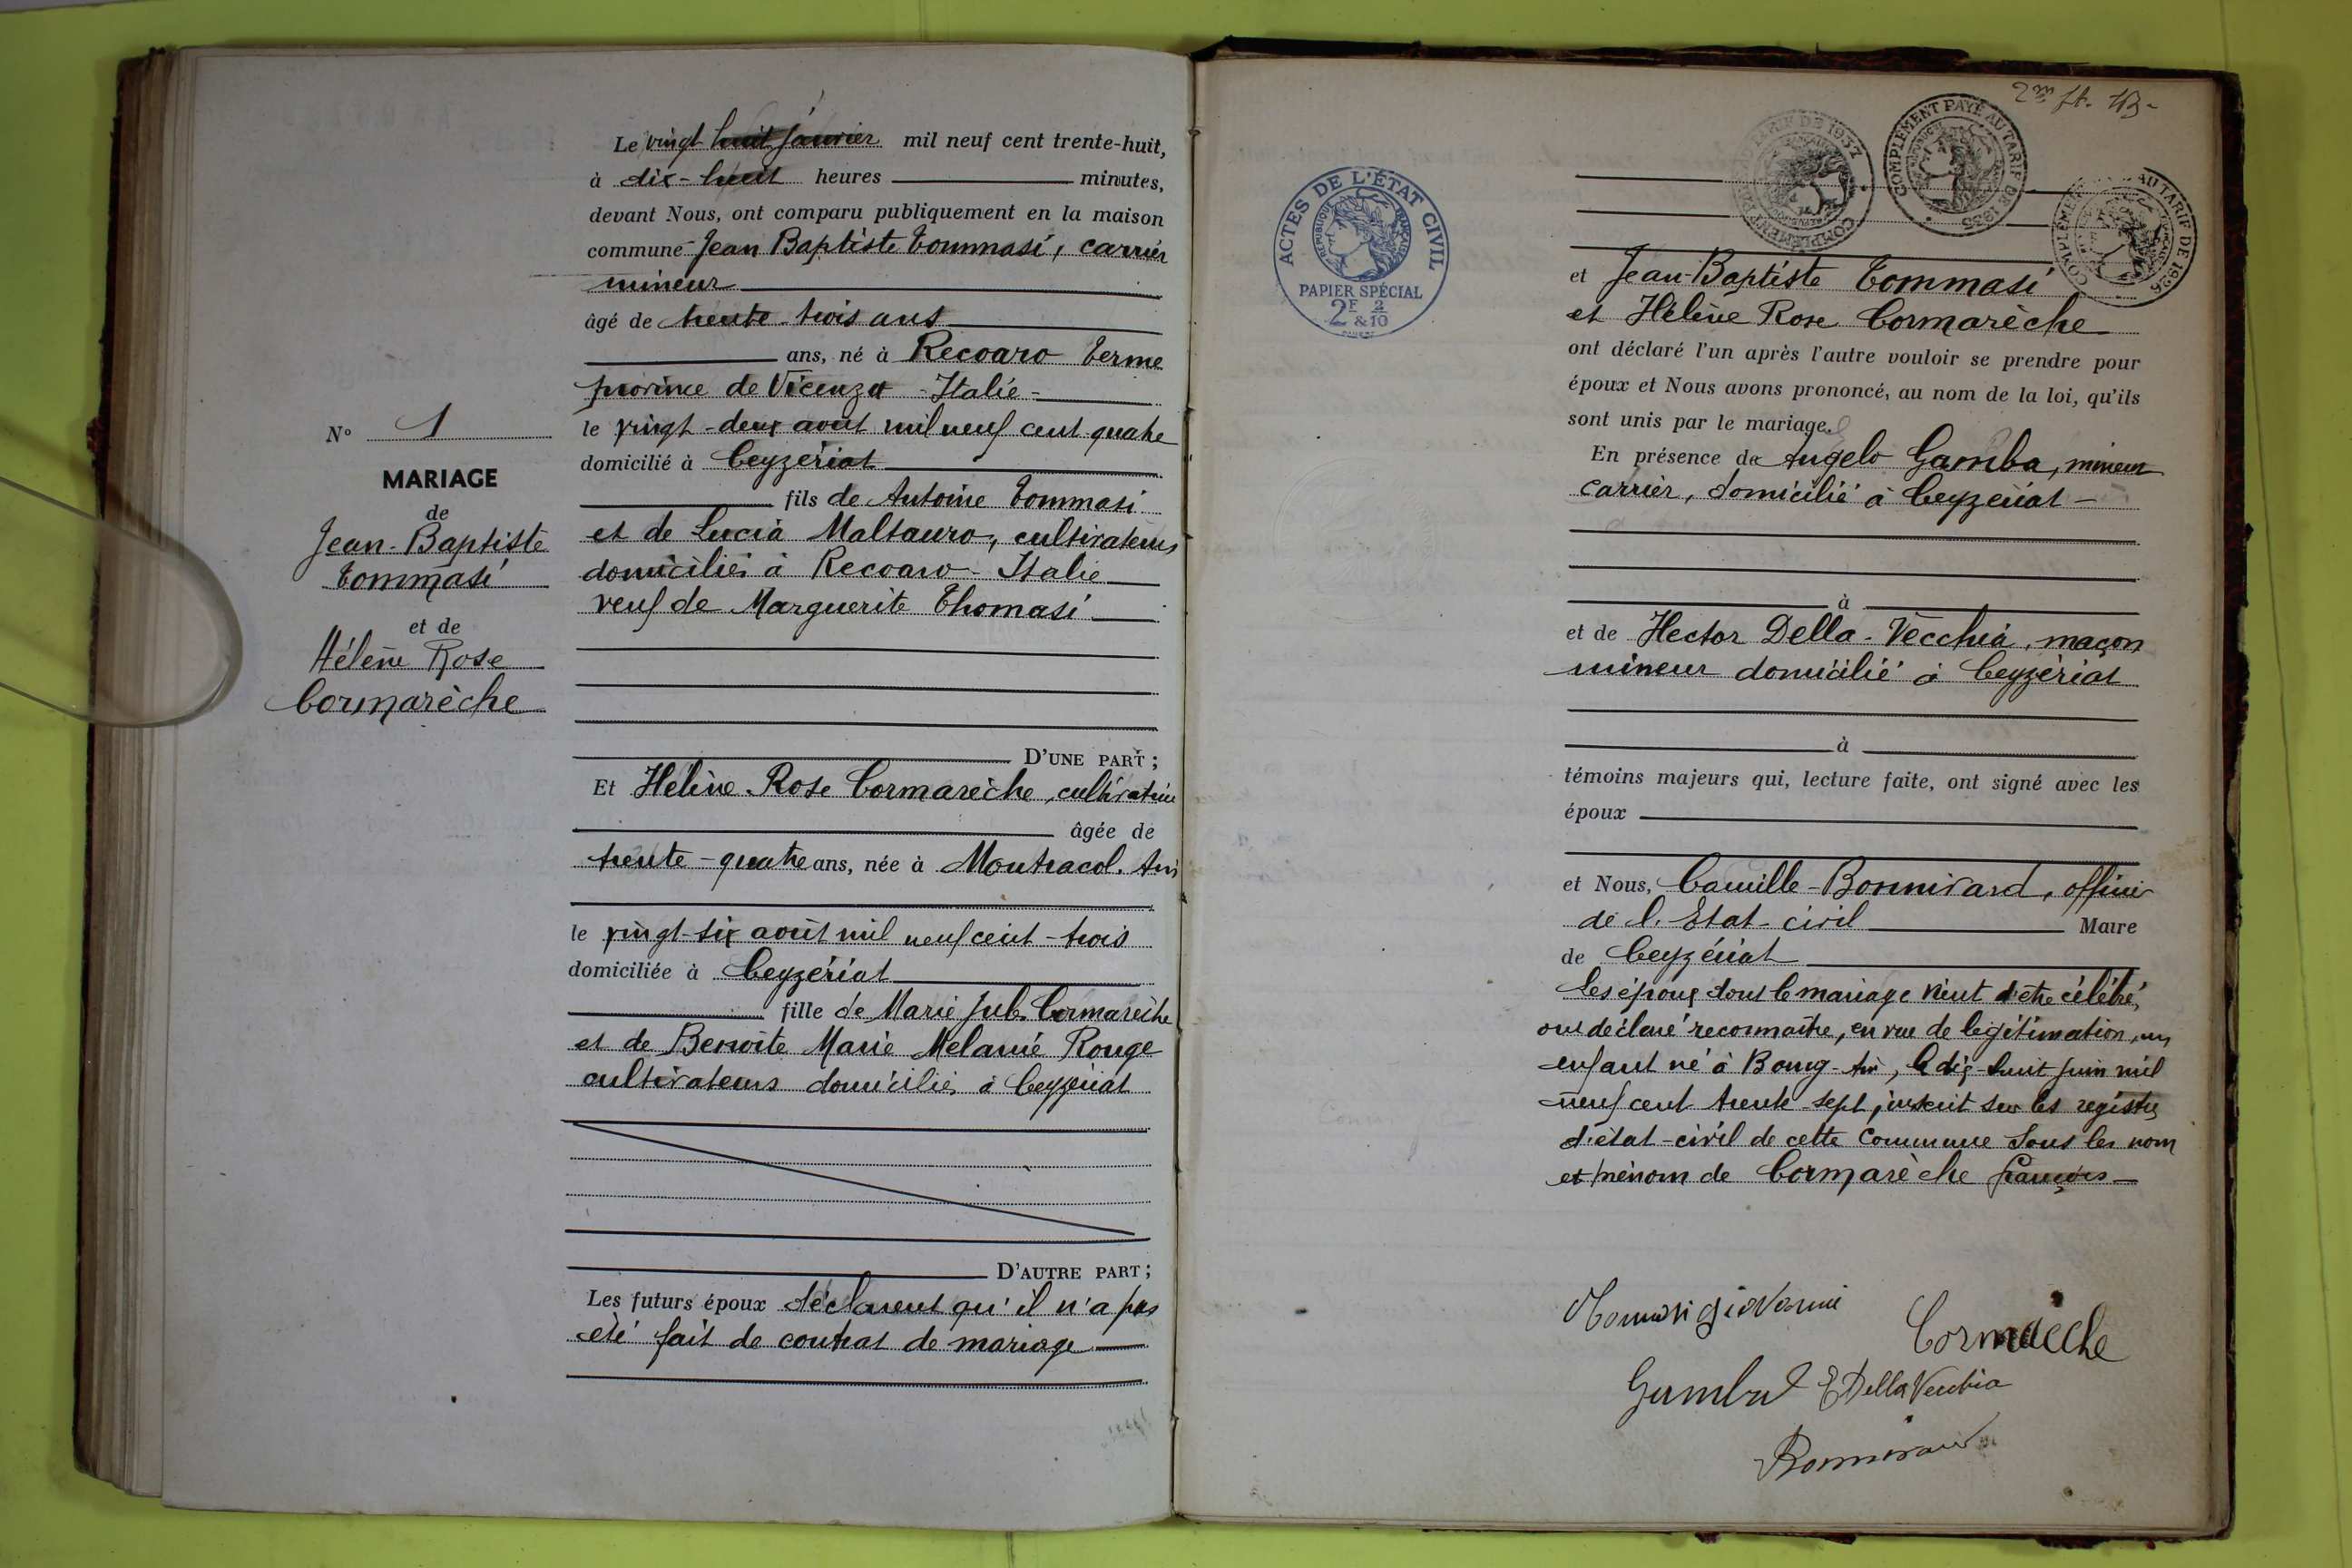 Le vingt huit janvier mil neuf cent trente-huit,
à dix-huit heures minutes,
devant Nous, ont comparu publiquement en la maison
commune Jean Baptiste Tommasi, carrier
mineur
âgé de trente-trois ans
ans, né à Recoaro Terme
province de Vicenza - Italie -
le vingt-deux août mil neuf cent quatre
domicilié à Ceyzériat
fils de Antoine Tommasi
et de Lucia Maltauro, cultivateurs
domiciliés à Recoaro - Italie
veuf de Marguerite Thomasi
D'UNE PART ;
Et Hélène-Rose Cormarèche, cultivatrice
âgée de
trente-quatre ans, née à Montracol. Ain
le vingt-six août mil neuf cent-trois
domiciliée à Ceyzériat
fille de Marie Cormarèche
et de Benoite Marie Mélanie Rouge
cultivateurs domiciliés à Ceyzériat
D'AUTRE PART ;
Les futurs époux déclarent qu'il n'a pas
été fait de contrat de mariage
N° 1
MARIAGE
de
Jean-Baptiste
Tommasi
et de
Hélène Rose
Cormarèche
ACTES DE L'ÉTAT CIVIL
RÉPUBLIQUE FRANÇAISE
PAPIER SPÉCIAL
2F & 2/10
COMPLÉMENT PAYÉ AU TARIF DE 1937
COMPLÉMENT PAYÉ AU TARIF DE 1935
COMPLÉMENT AU TARIF DE 1936
et Jean-Baptiste Tommasi
et Hélène Rose Cormarèche
ont déclaré l'un après l'autre vouloir se prendre pour
époux et Nous avons prononcé, au nom de la loi, qu'ils
sont unis par le mariage.
En présence de Angelo Gamba, mineur
carrier, domicilié à Ceyzériat -
à
et de Hector Della-Vecchia, maçon
mineur domicilié à Ceyzériat
à
témoins majeurs qui, lecture faite, ont signé avec les
époux
et Nous, Camille-Bonnivard, officier
de l'Etat-civil Maire
de Ceyzériat
Les époux dont le mariage vient d'être célébré,
ont déclaré reconnaître, en vue de légitimation, un
enfant né à Bourg-Ain, le dix-huit juin mil
neuf cent trente-sept, inscrit sur les registres
d'état-civil de cette Commune sous les nom
et prénom de Cormarèche François -
Tomasi Giovanni
Cormareche
Gamba
E Della Vecchia
Bonnivard